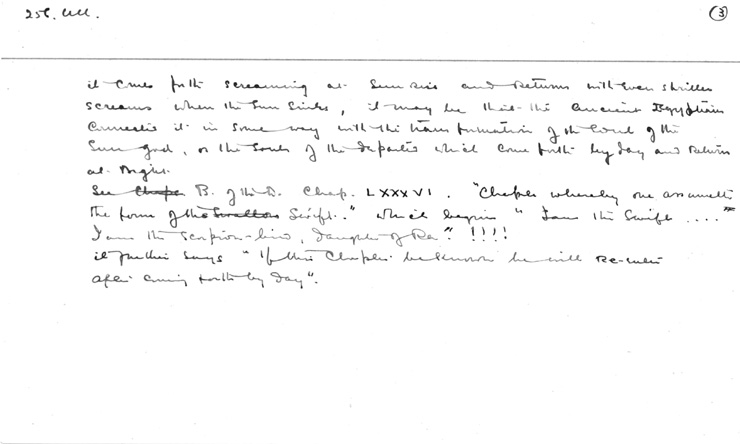 256. ccc.
3
it comes forth screaming at Sun rise and returns with even shriller
screams when the Sun sinks, it may be that the ancient Egyptian
connected it in some way with the transformation of the Soul of the
Sun god, or the Souls of the departed which come forth by day and return
at night.
See Chap B. of the D. Chap. LXXXVI. "Chapter whereby one assumeth
the form of the Swallow Swift." which begins " I am the Swift ...."
I am the Scorpion-bird, daughter of Ra." !!!!
it further says "If this Chapter be known he will re-enter
after coming forth by day".